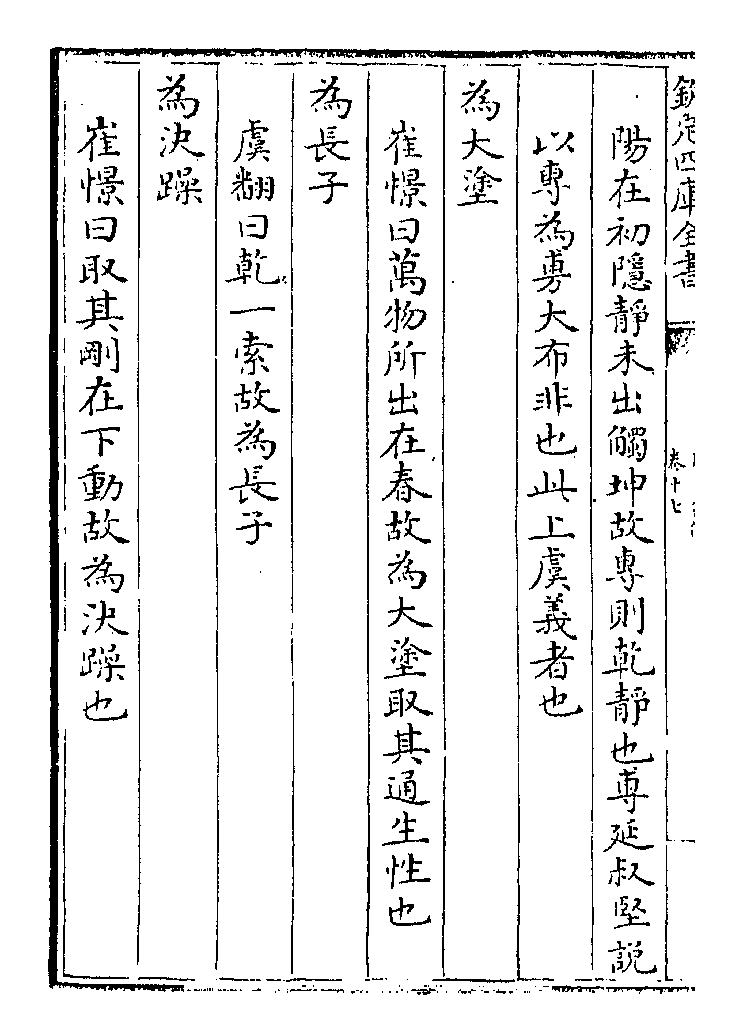 欽定四庫全書
卷十七
陽在初隱靜未出觸坤故專則乾靜也專延叔堅說
以專為旉大布非也此上虞義者也
為大塗
崔憬曰萬物所出在春故為大塗取其通生性也
為長子
虞翻曰乾一索故為長子
為決躁
崔憬曰取其剛在下動故為決躁也